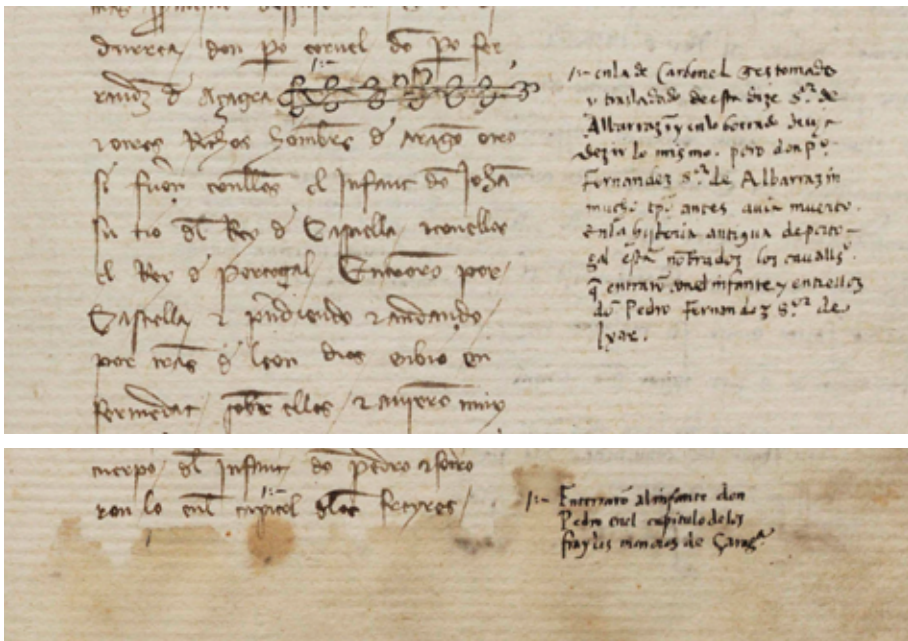 durrea don po cornel do po fer
randz d Azagra
τ otres Richos hombres d Arago otro
si fuero conellos el Infant do Joha
su tio dl Rey d Castiella τ conellos
el Rey d Portogal Entroro por
Castiella τ prndiendo τ andando
por trras d leon dios enbio en
fermedat sobre elles τ auiero muy
/:- en la de Carbonel q es tomado
y trasladado de esta dize s.or de
Albarrazin y en lo borrado deuia
dezir lo mismo. pero don P.o
Fernandez s.or de Albarrazin
mucho tpo antes auia muerto.
en la historia antigua de porto-
gal esta nobrados los cauall.s
q entraro con el infante, y entrellos
do Pedro Fernandez s.or de
Ixar.
cuerpo dl Infant do pedro τ
ron lo enl capitol dlos freyres
/:- Enterraro al infante don
Pedro enel capitulo delos
frayles menores de Çarag.a